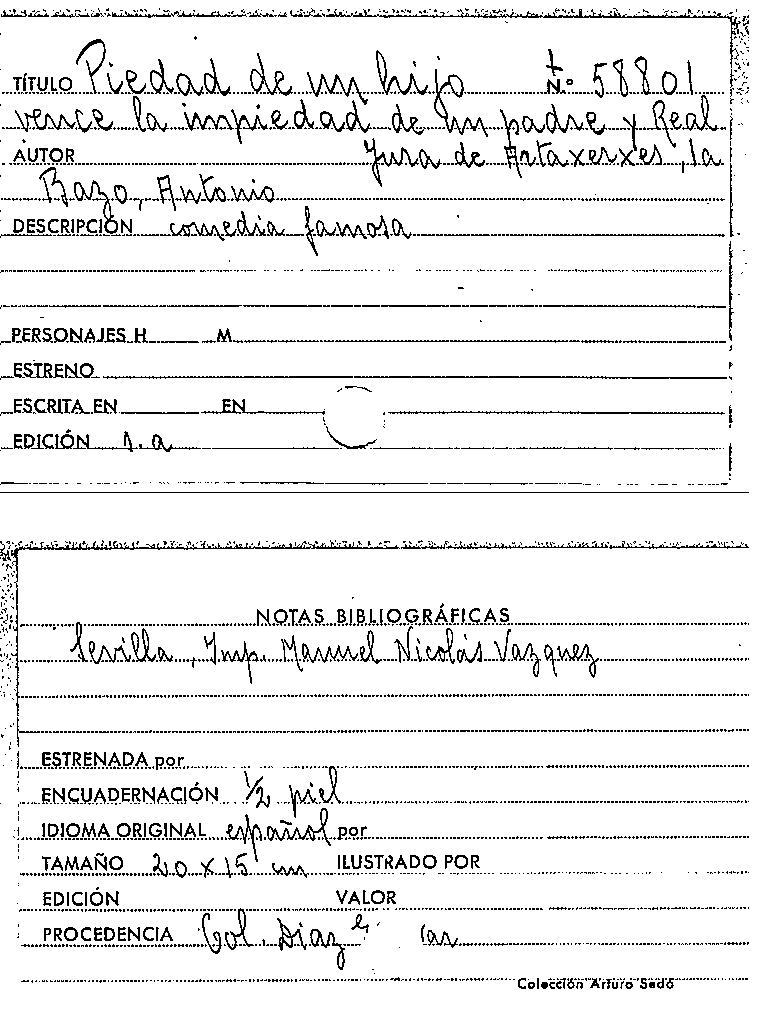 TÍTULO Piedad de un hijo N.º 58801
vence la impiedad de un padre y Real
AUTOR Jura de Artaxerxes, la
Bazo, Antonio
DESCRIPCIÓN comedia famosa
PERSONAJES H M
ESTRENO
ESCRITA EN EN
EDICIÓN s.a
NOTAS BIBLIOGRÁFICAS
Sevilla, Imp. Manuel Nicolás Vazquez
ESTRENADA por
ENCUADERNACIÓN 1/2 piel
IDIOMA ORIGINAL español por
TAMAÑO 20 x 15 cm ILUSTRADO POR
EDICIÓN VALOR
PROCEDENCIA Col. Diaz
Colección Arturo Sedó